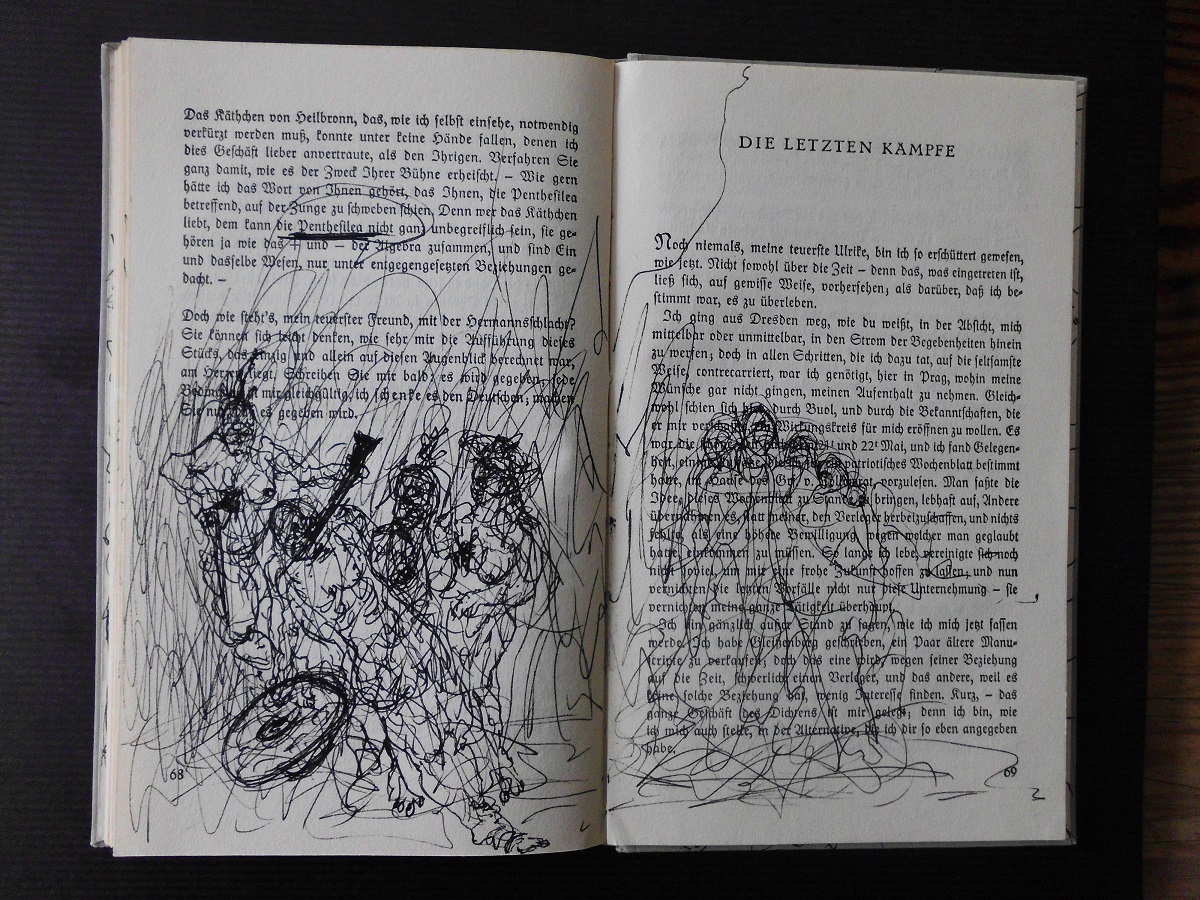 Das Käthchen von Heilbronn, das, wie ich selbst einsehe, notwendig
verkürzt werden muß, konnte unter keine Hände fallen, denen ich
dies Geschäft lieber anvertraute, als den Ihrigen. Verfahren Sie
ganz damit, wie es der Zweck Ihrer Bühne erheischt. – Wie gern
hätte ich das Wort von Ihnen gehört, das Ihnen, die Penthesilea
betreffend, auf der Zunge zu schweben schien. Denn wer das Käthchen
liebt, dem kann die Penthesilea nicht ganz unbegreiflich sein, sie ge-
hören ja wie das + und – der Algebra zusammen, und sind Ein
und dasselbe Wesen, nur unter entgegengesetzten Beziehungen ge-
dacht. –
Doch wie steht's, mein teuerster Freund, mit der Hermannsschlacht?
Sie können sich leicht denken, wie sehr mir die Aufführung dieses
Stücks, das einzig und allein auf diesen Augenblick berechnet war,
am Herzen liegt. Schreiben Sie mir bald: es wird gegeben; jede
Bedingung ist mir gleichgültig, ich schenke es den Deutschen; machen
Sie nur, daß es gegeben wird.
68
DIE LETZTEN KÄMPFE
Noch niemals, meine teuerste Ulrike, bin ich so erschüttert gewesen,
wie jetzt. Nicht sowohl über die Zeit – denn das, was eingetreten ist,
ließ sich, auf gewisse Weise, vorhersehen; als darüber, daß ich be-
stimmt war, es zu überleben.
Ich ging aus Dresden weg, wie du weißt, in der Absicht, mich
mittelbar oder unmittelbar, in den Strom der Begebenheiten hinein
zu werfen; doch in allen Schritten, die ich dazu tat, auf die seltsamste
Weise, contrecarriert, war ich genötigt, hier in Prag, wohin meine
Wünsche gar nicht gingen, meinen Aufenthalt zu nehmen. Gleich-
wohl schien sich hier durch Buol, und durch die Bekanntschaften, die
er mir verschaffte, ein Wirkungskreis für mich eröffnen zu wollen. Es
war die und 22t Mai, und ich fand Gelegen-
heit, einige Aufsätze, die ich für ein patriotisches Wochenblatt bestimmt
hatte, im Hause des Grf. v. Kolowrat, vorzulesen. Man faßte die
Idee, dieses Wochenblatt zu Stande zu bringen, lebhaft auf, Andere
übernahmen es, statt meiner, den Verleger herbeizuschaffen, und nichts
fehlte, als eine höhere Bewilligung, wegen welcher man geglaubt
hatte, einkommen zu müssen. So lange ich lebe, vereinigte sich noch
nicht soviel, um mir eine frohe Zukunft hoffen zu lassen; und nun
vernichten die letzten Vorfälle nicht nur diese Unternehmung – sie
vernichten meine ganze Tätigkeit überhaupt.
Ich bin gänzlich außer Stand zu sagen, wie ich mich jetzt fassen
werde. Ich habe Gleißenberg geschrieben, ein Paar ältere Manu-
scripte zu verkaufen; doch das eine wird, wegen seiner Beziehung
auf die Zeit, schwerlich einen Verleger, und das andere, weil es
keine solche Beziehung hat, wenig Interesse finden. Kurz, – das
ganze Geschäft des Dichtens ist mir gelegt; denn ich bin, wie
ich mich auch stelle, in der Alternative, die ich dir so eben angegeben
habe.
69
2